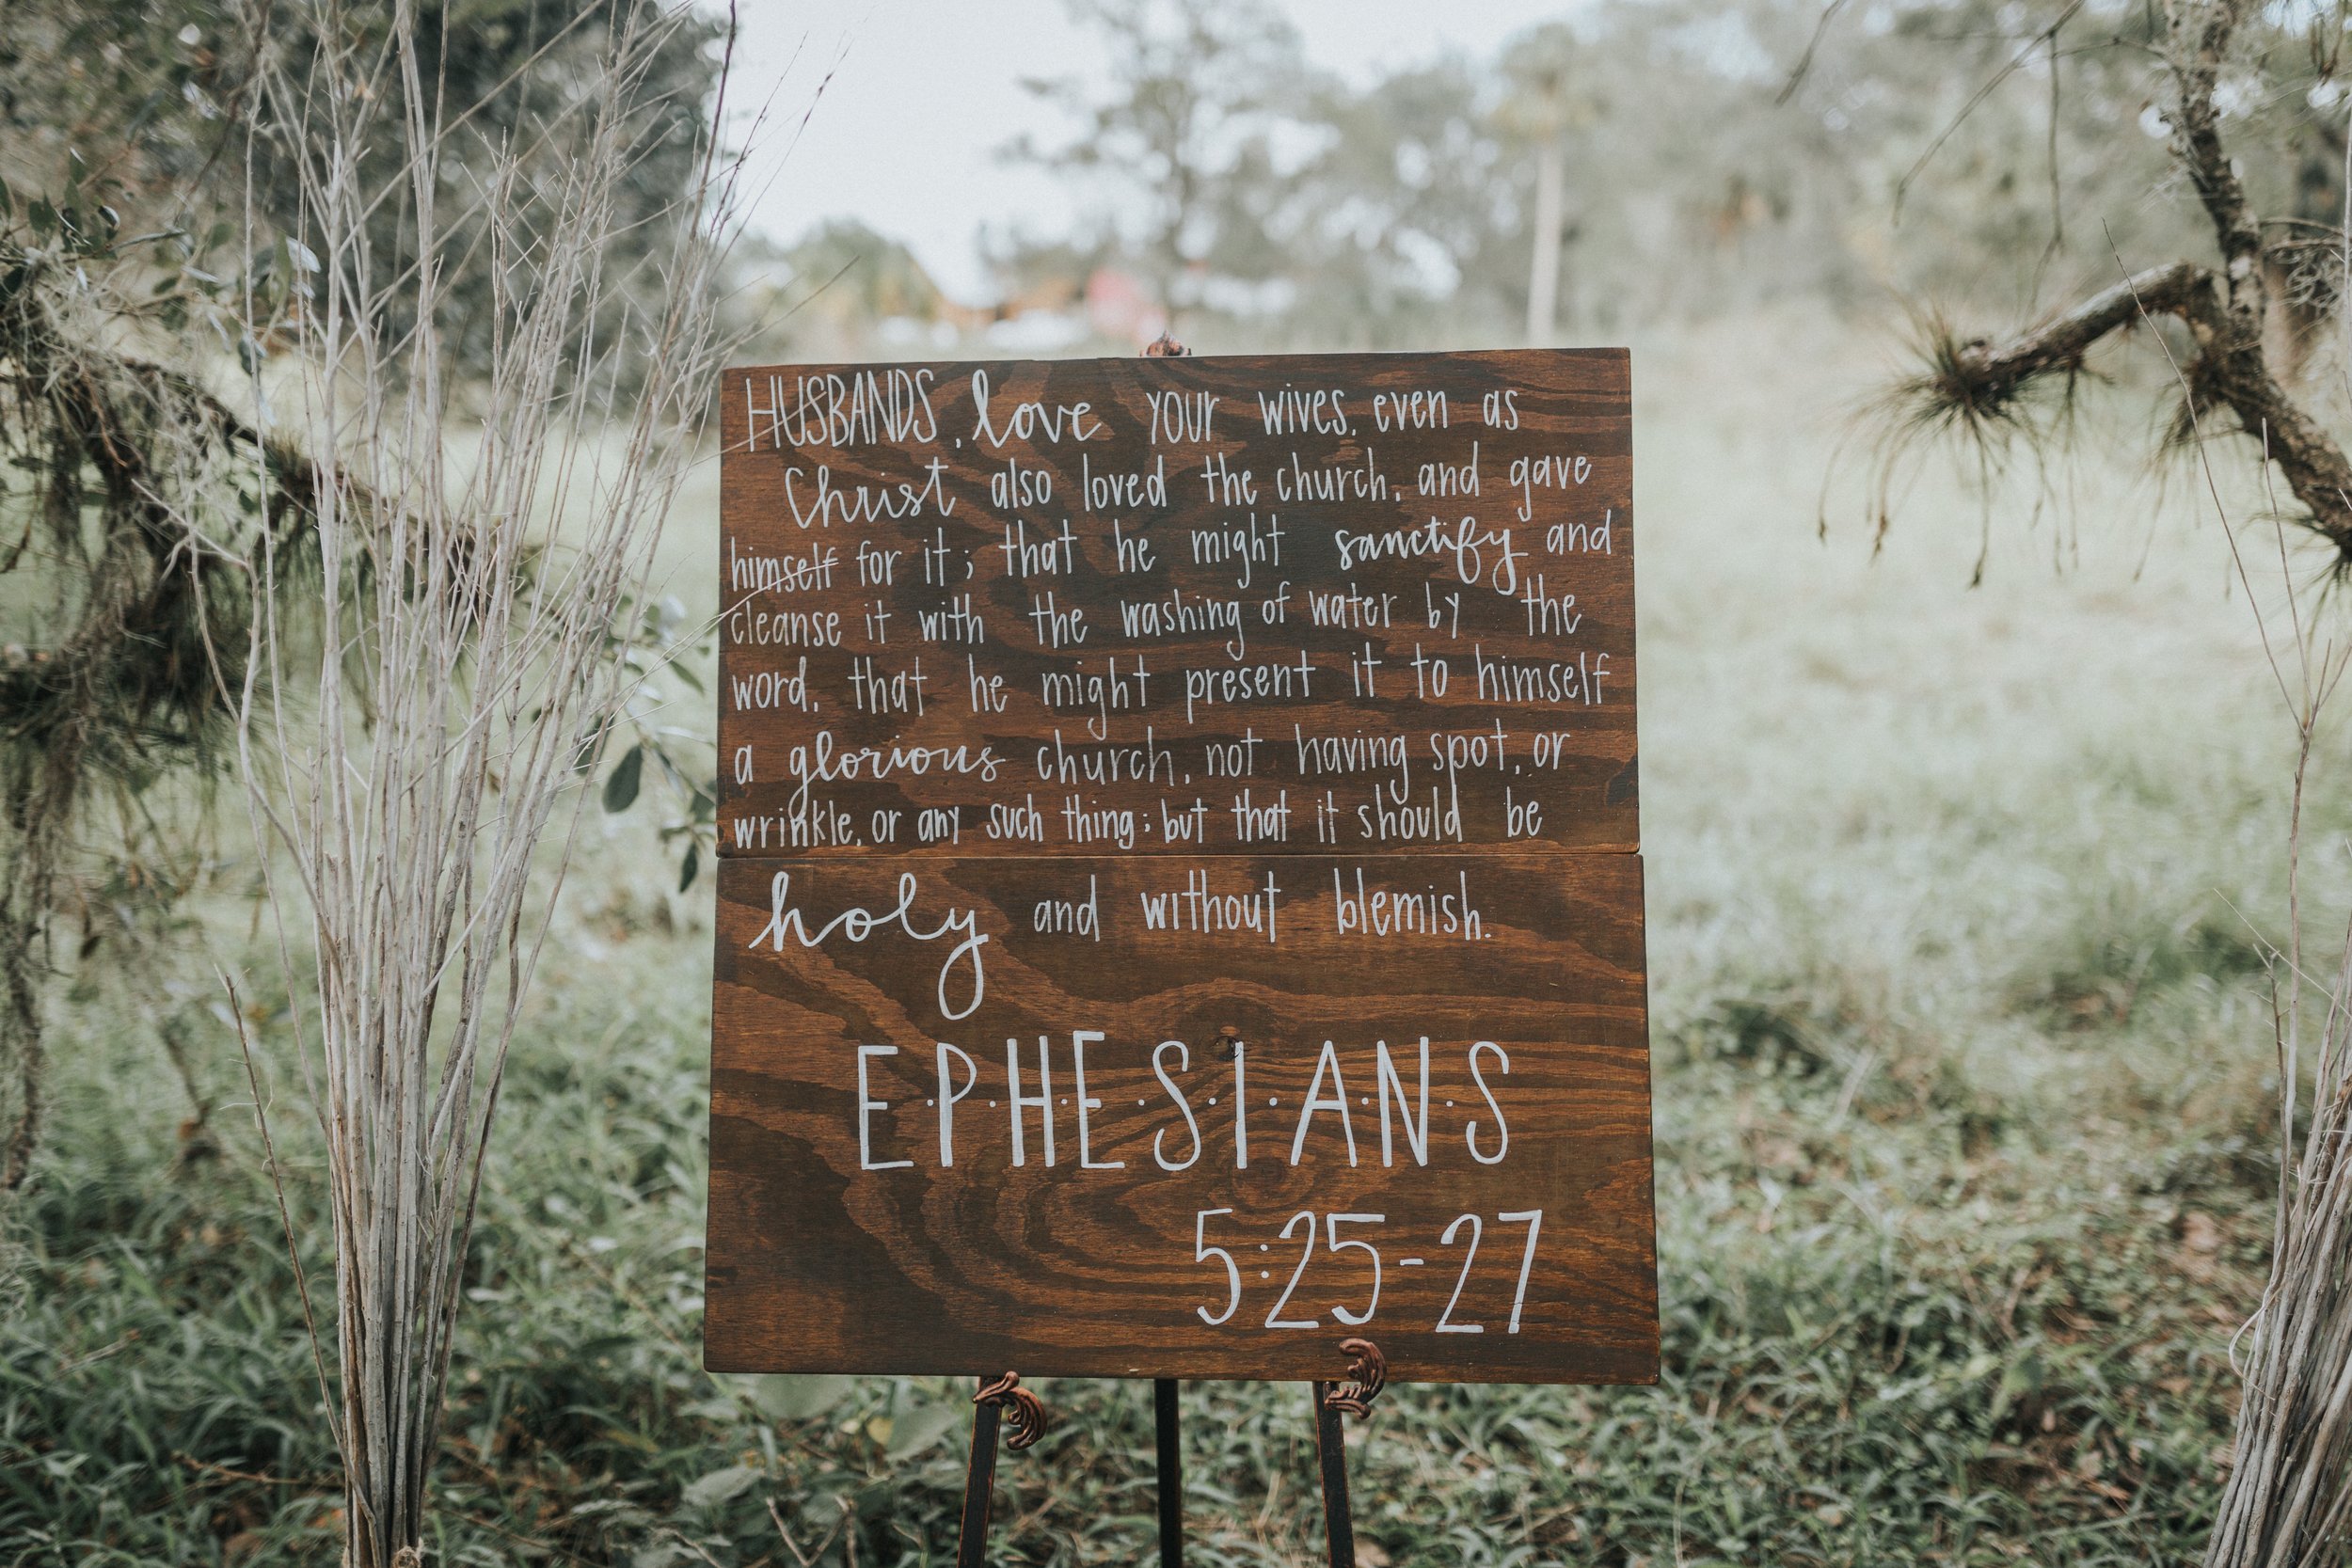 HUSBANDS, love your wives, even as
Christ also loved the church, and gave
himself for it; that he might sanctify and
cleanse it with the washing of water by the
word, that he might present it to himself
a glorious church, not having spot, or
wrinkle, or any such thing; but that it should be
holy and without blemish.
E·P·H·E·S·I·A·N·S
5:25-27